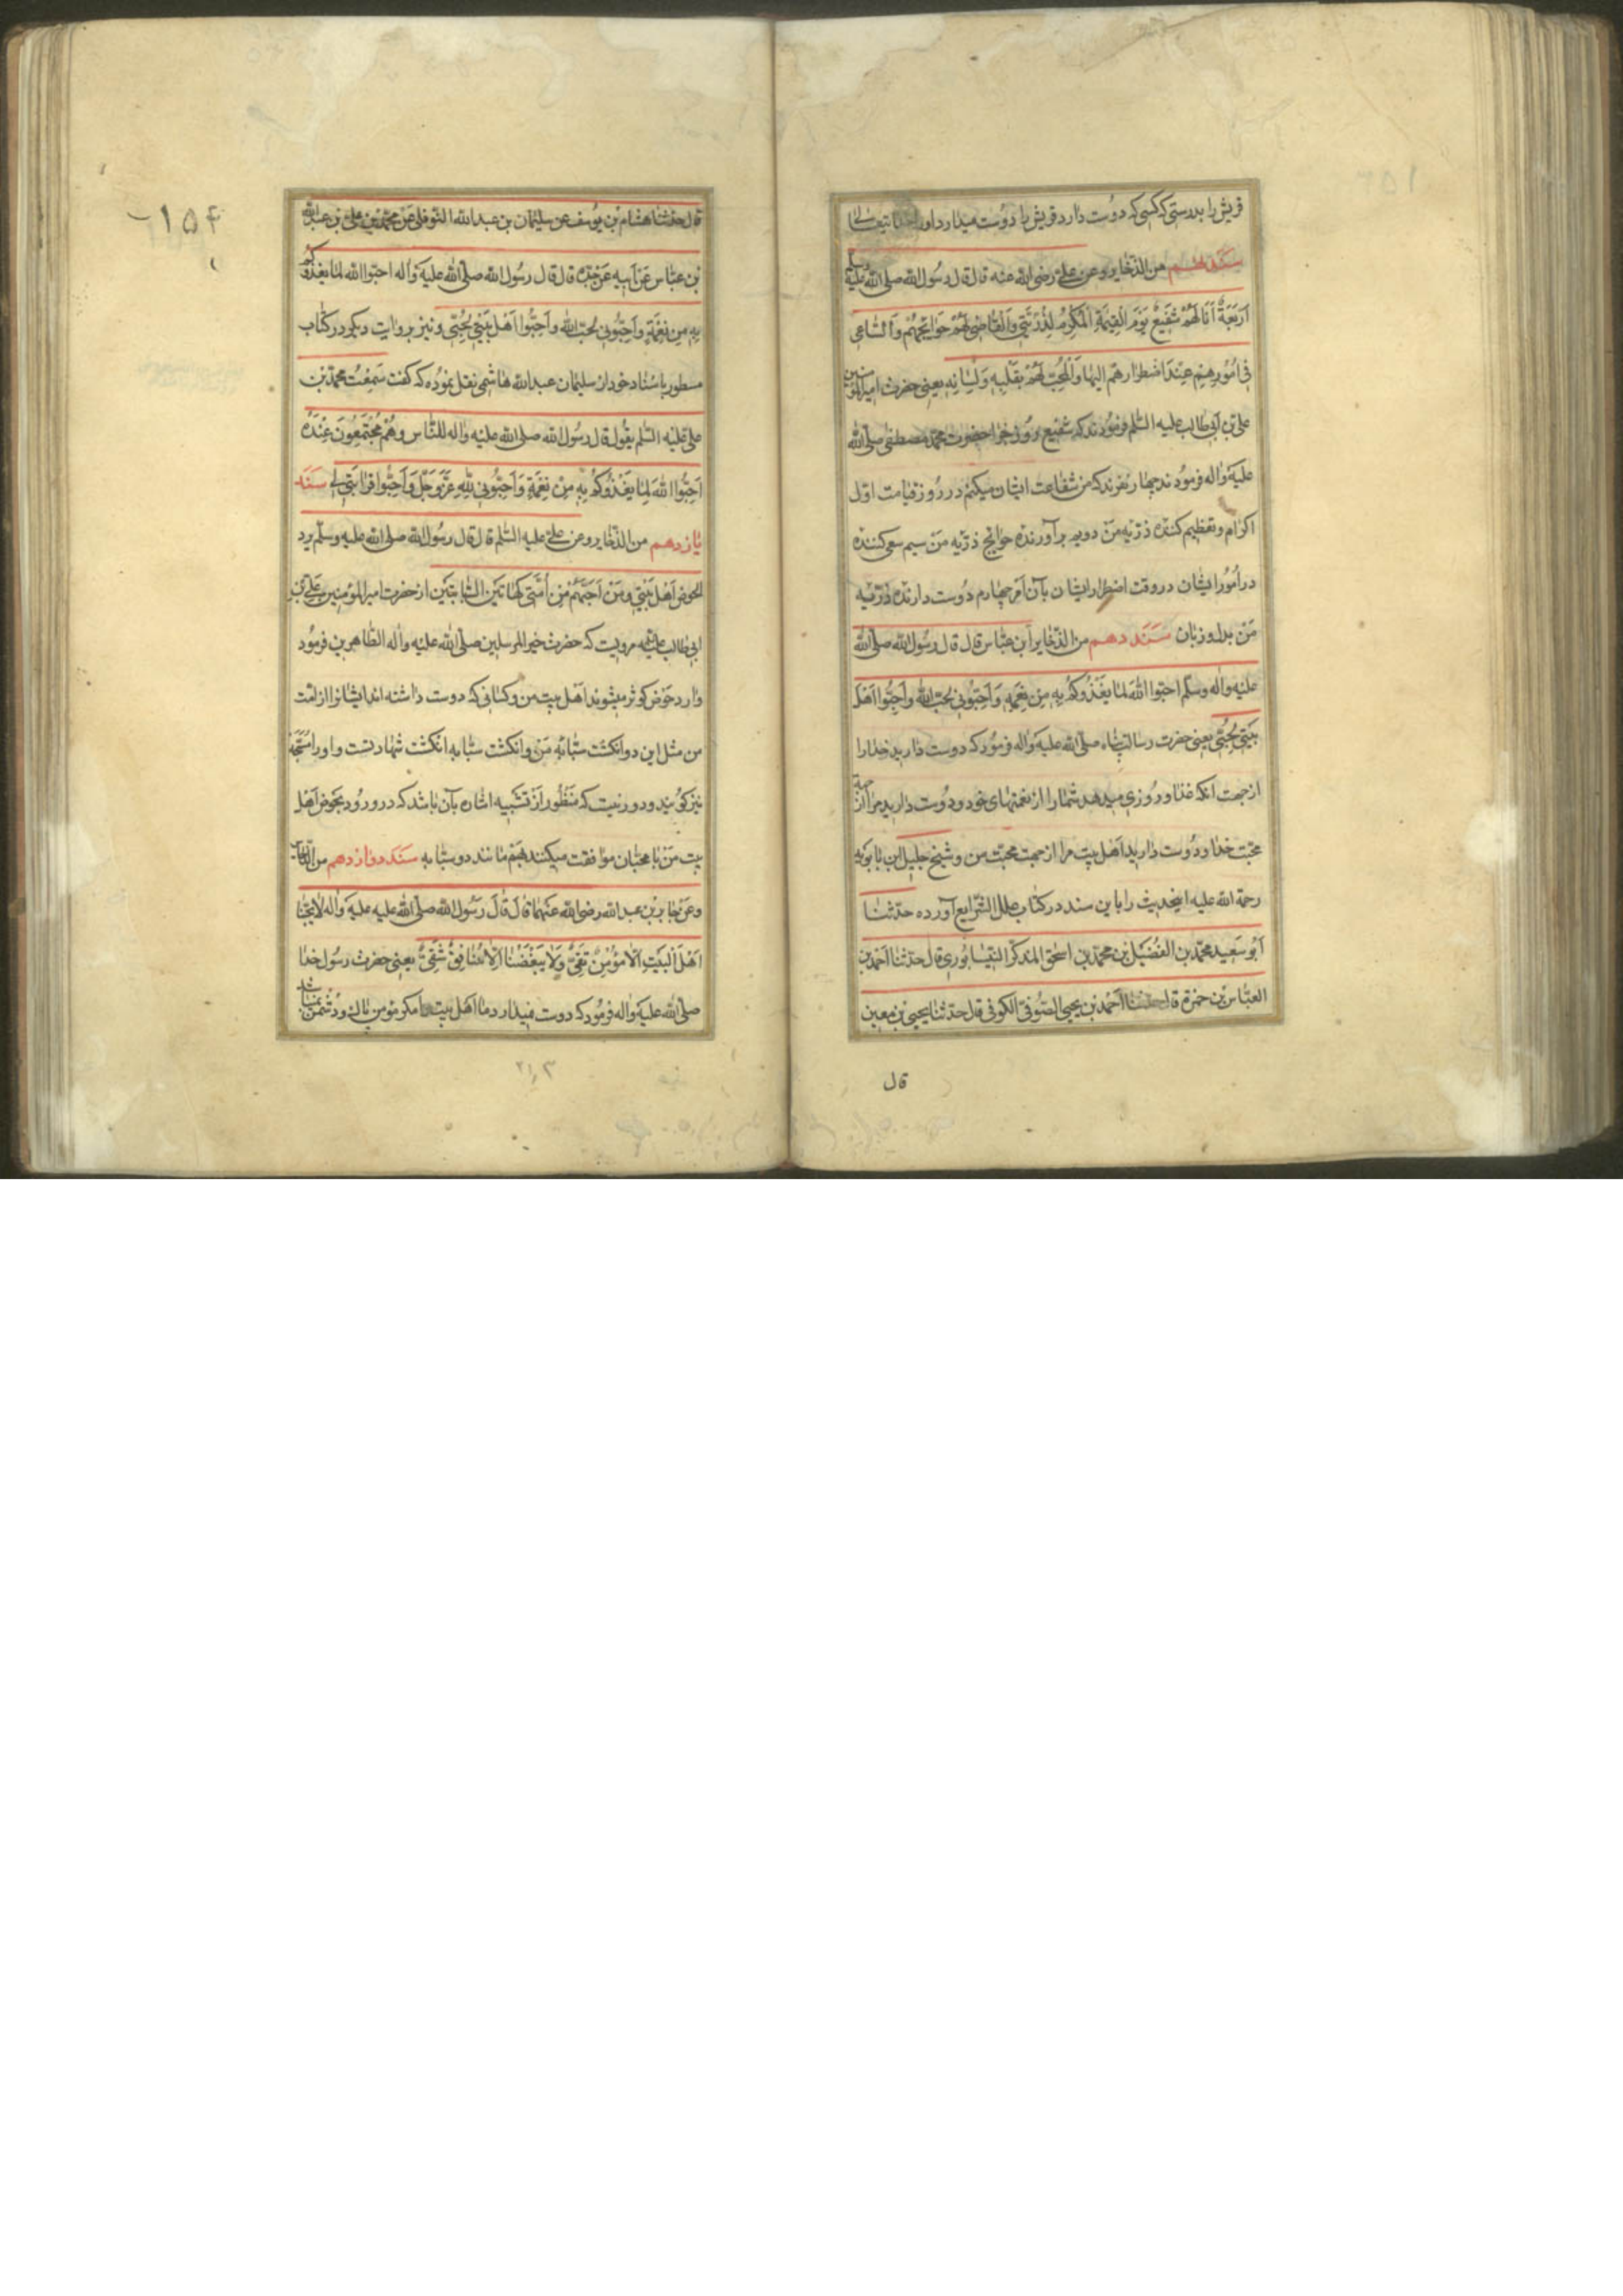 قریش را بدرستی که کسی که دوست دارد قریش را دوست میدارد او را خدا تیعالی
سند نهم من الذخایر و عن علی رضی الله عنه قال قال رسول الله صلی الله علیه وسلم
اَربَعَةٌ اَنَا لَهُمْ شَفیعٌ یَوْمَ الْقِیمَةِ اَلْمُکْرِمُ لِذُرِّیَّتی وَالْقَاضِی لَهُمْ حَوائِجَهُمْ وَالسّاعی
فی اُمُوْرِهِمْ عِنْدَ اضطِرارِهِم الیها وَالْمُحِبُّ لَهُمْ بِقَلْبِهِ وَلِسَانِهِ یعنی حضرت امیرالمؤمنین
علی بن ابی طالب علیه السّلم فرمودند که شفیع روز جزا حضرت محمد مصطفی صلی الله
علیه واله فرمودند چهار نفرند که من شفاعت ایشان میکنم در روز قیامت اوّل
اکرام و تعظیم کننده ذرّیه من دویم برآورنده حوائج ذرّیه من سیم سعی کننده
در امور ایشان در وقت اضطرار ایشان بآن امر چهارم دوست دارنده ذرّیه
من بدل و زبان سند دهم من الذّخایر ابن عبّاس قال قال رسول الله صلی الله
علیه واله وسلّم احبّوا اللهَ لما یَغْذُوکُمْ بِهِ مِن نِعَمِهِ وَاَحِبُّونی لحبّ الله وَاَحِبُّوا اَهْلَ
بَیْتی لِحُبّی یعنی حضرت رسالت پناه صلی الله علیه واله فرمود که دوست دارید خدا را
از جهت آنکه غذا و روزی میدهد شما را از نعمتهای خود و دوست دارید مرا از جهة
محبّت خدا و دوست دارید اهل بیت مرا از جهت محبّت من و شیخ جلیل ابن بابویه
رحمة الله علیه اینحدیث را باین سند در کتاب علل الشّرایع آورده حدّثنا
اَبُو سَعید محمّد بن الفُضَیل بن محمّد بن اسحق المذکّر النیسابوری قال حدّثنا احمد بن
العبّاس بن حمزة قال حدثنا احمد بن یحیی الصّوفی الکوفی قال حدّثنا یحیی بن معین
قال
۱۵۴
قال حدثنا هشام بن یوسف عن سلیمان بن عبدالله النوفلی عن محمّد بن علی بن عبدالله
بن عبّاس عَنْ اَبیهِ عَنْ جَدّه قال قال رسول الله صلّی الله علیه واله احبّوا الله لما یغذوکم
بِهِ مِن نِعْمَةٍ وَاَحِبُّونی لحبّ الله وَاَحِبُّوا اَهْلَ بَیْتی لِحُبّی و نیز بروایت دیگر در کتاب
مسطور باسناد خود از سلیمان عبدالله هاشمی نقل نموده که گفت سَمِعْتُ محمّد بن
علی علیه السّلم یقول قال رسول الله صلی الله علیه واله للنّاس وَهُمْ مُجْتَمِعُونَ عِنْدَهُ
اَحِبُّوا اللهَ لِمَا یَغْذُوکُمْ بِهِ مِنْ نِعْمَةٍ وَاَحِبُّونی لِلّهِ عَزَّوَجَلَّ وَاَحِبُّوا قَرابَتی لی سند
یازدهم من الذّخایر و عن علی علیه السّلم قال قال رسول الله صلی الله علیه وسلّم یرد
الحوض اَهْلُ بَیْتی وَمَنْ اَحَبَّهُمْ مِنْ اُمَّتی کَهاتَیْنِ السَّبّابَتَیْنِ از حضرت امیرالمؤمنین علی بن
ابی طالب علیه مرویست که حضرت خیرالمرسلین صلی الله علیه واله الطّاهرین فرمود
وارد حوض کوثر میشوند اهل بیت من و کسانی که دوست داشته اند ایشانرا از امّت
من مثل این دو انگشت سبّابه من و انگشت سبّابه انگشت شهادتست و او را مسبّحه
نیز گویند و دور نیست که منظور از تشبیه اشاره بآن باشد که در ورود بحوض اهل
بیت من با محبّان موافقت میکنند هم مانند دو سبّابه سند دوازدهم من الذخایر
و عن جابر بن عبدالله رضی الله عنهما قال قال رسول الله صلّی الله علیه علیه واله لا یحبّنا
اَهْلَ الْبَیْتِ اِلّا مُؤْمِنٌ تَقِیٌّ وَلا یُبْغِضُنا اِلّا مُنافِقٌ شَقِیٌّ یعنی حضرت رسول خدا
صلی الله علیه واله فرمود که دوست نمیدارد ما اهل بیت را مگر مؤمن پاک و دشمن
۲۱۳